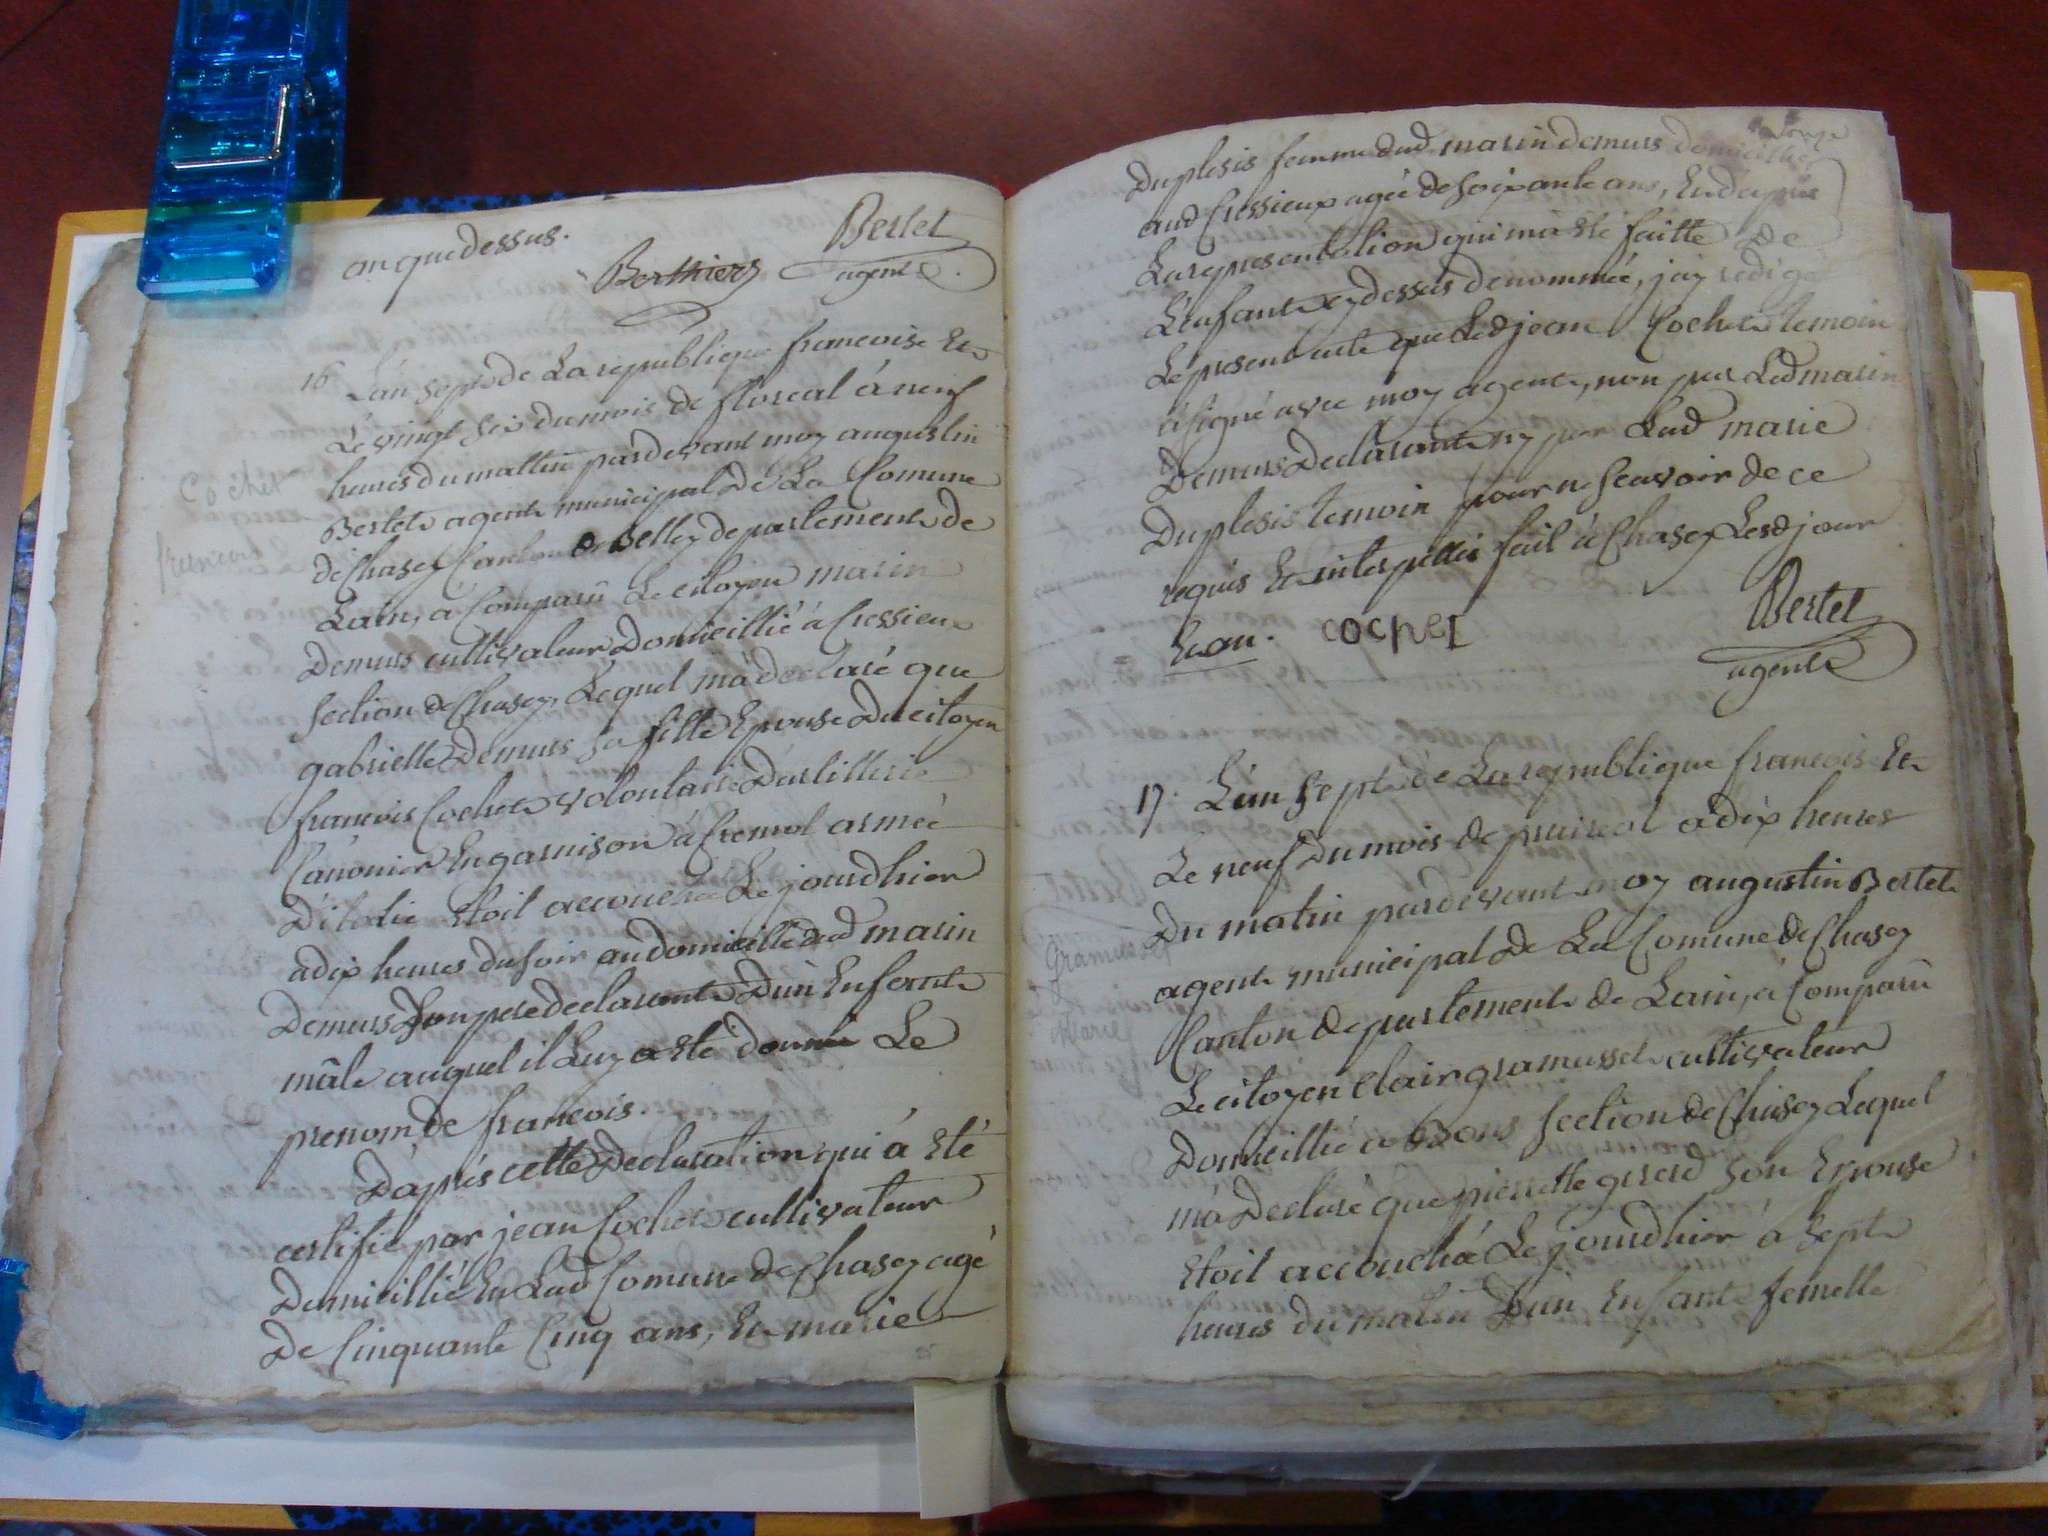 an que dessus.
Berthier Bertet
agent
16 L'an sept de La republique francoise Et
Le vingt six du mois de floreal à neuf
heures du mattin pardevant moy augustin
Bertet agent municipal de La Comune
de Chasey Canton de Belley departement de
Lain, a Comparû Le citoyen marin
Demurs cultivateur Domicillié à Cressieu
section de Chasey, Lequel mà declaré que
gabrielle Demurs sa fille Epouse Du citoyen
francois Cochet volontaire D'artillerie
Canonier En garnison à Cremol armée
D'italie Etoit accouchée Le jourdhier
a dix heures du soir au domicille dud marin
Demurs Son pere declarant D'un Enfant
mâle auquel il Luy a eté donné Le
prenom de francois.
D'après cette Declaration qui à eté
certifié par jean Cochet cultivateur
Domicillié En Lad Comune de Chasey agé
De Cinquante Cinq ans, Et marie
Cochet
francois
Duplesis femme dud marin demurs domicilliée
aud Cressieux agée de soixante ans, Et d'après
La representation qui mà eté faitte de
L'enfant cy dessus denommé, j'ay redigé
Le present acte que Led jean Cochet temoin
à signé avec moy agent, non par Led marin
Demurs Declarant ny par Lad marie
Duplesis temoin pour ne scavoir de ce
requis Et interpellés fait à Chasey Lesd jour
Et an. cochet Bertet
agent
17. L'an sept de La republique francoise Et
Le neuf Du mois de prairial à dix heures
Du matin pardevant moy augustin Bertet
agent municipal De La Comune de Chasey
Canton departement de Lain, à Comparû
Le citoyen Clair gramusset cultivateur
Domicillié a Bons section de Chasey Lequel
mà Declaré que pierrette girerd son Epouse
Etoit accouchée Le jourdhier à sept
heures du matin D'un Enfant femelle
Gramusset
Marie